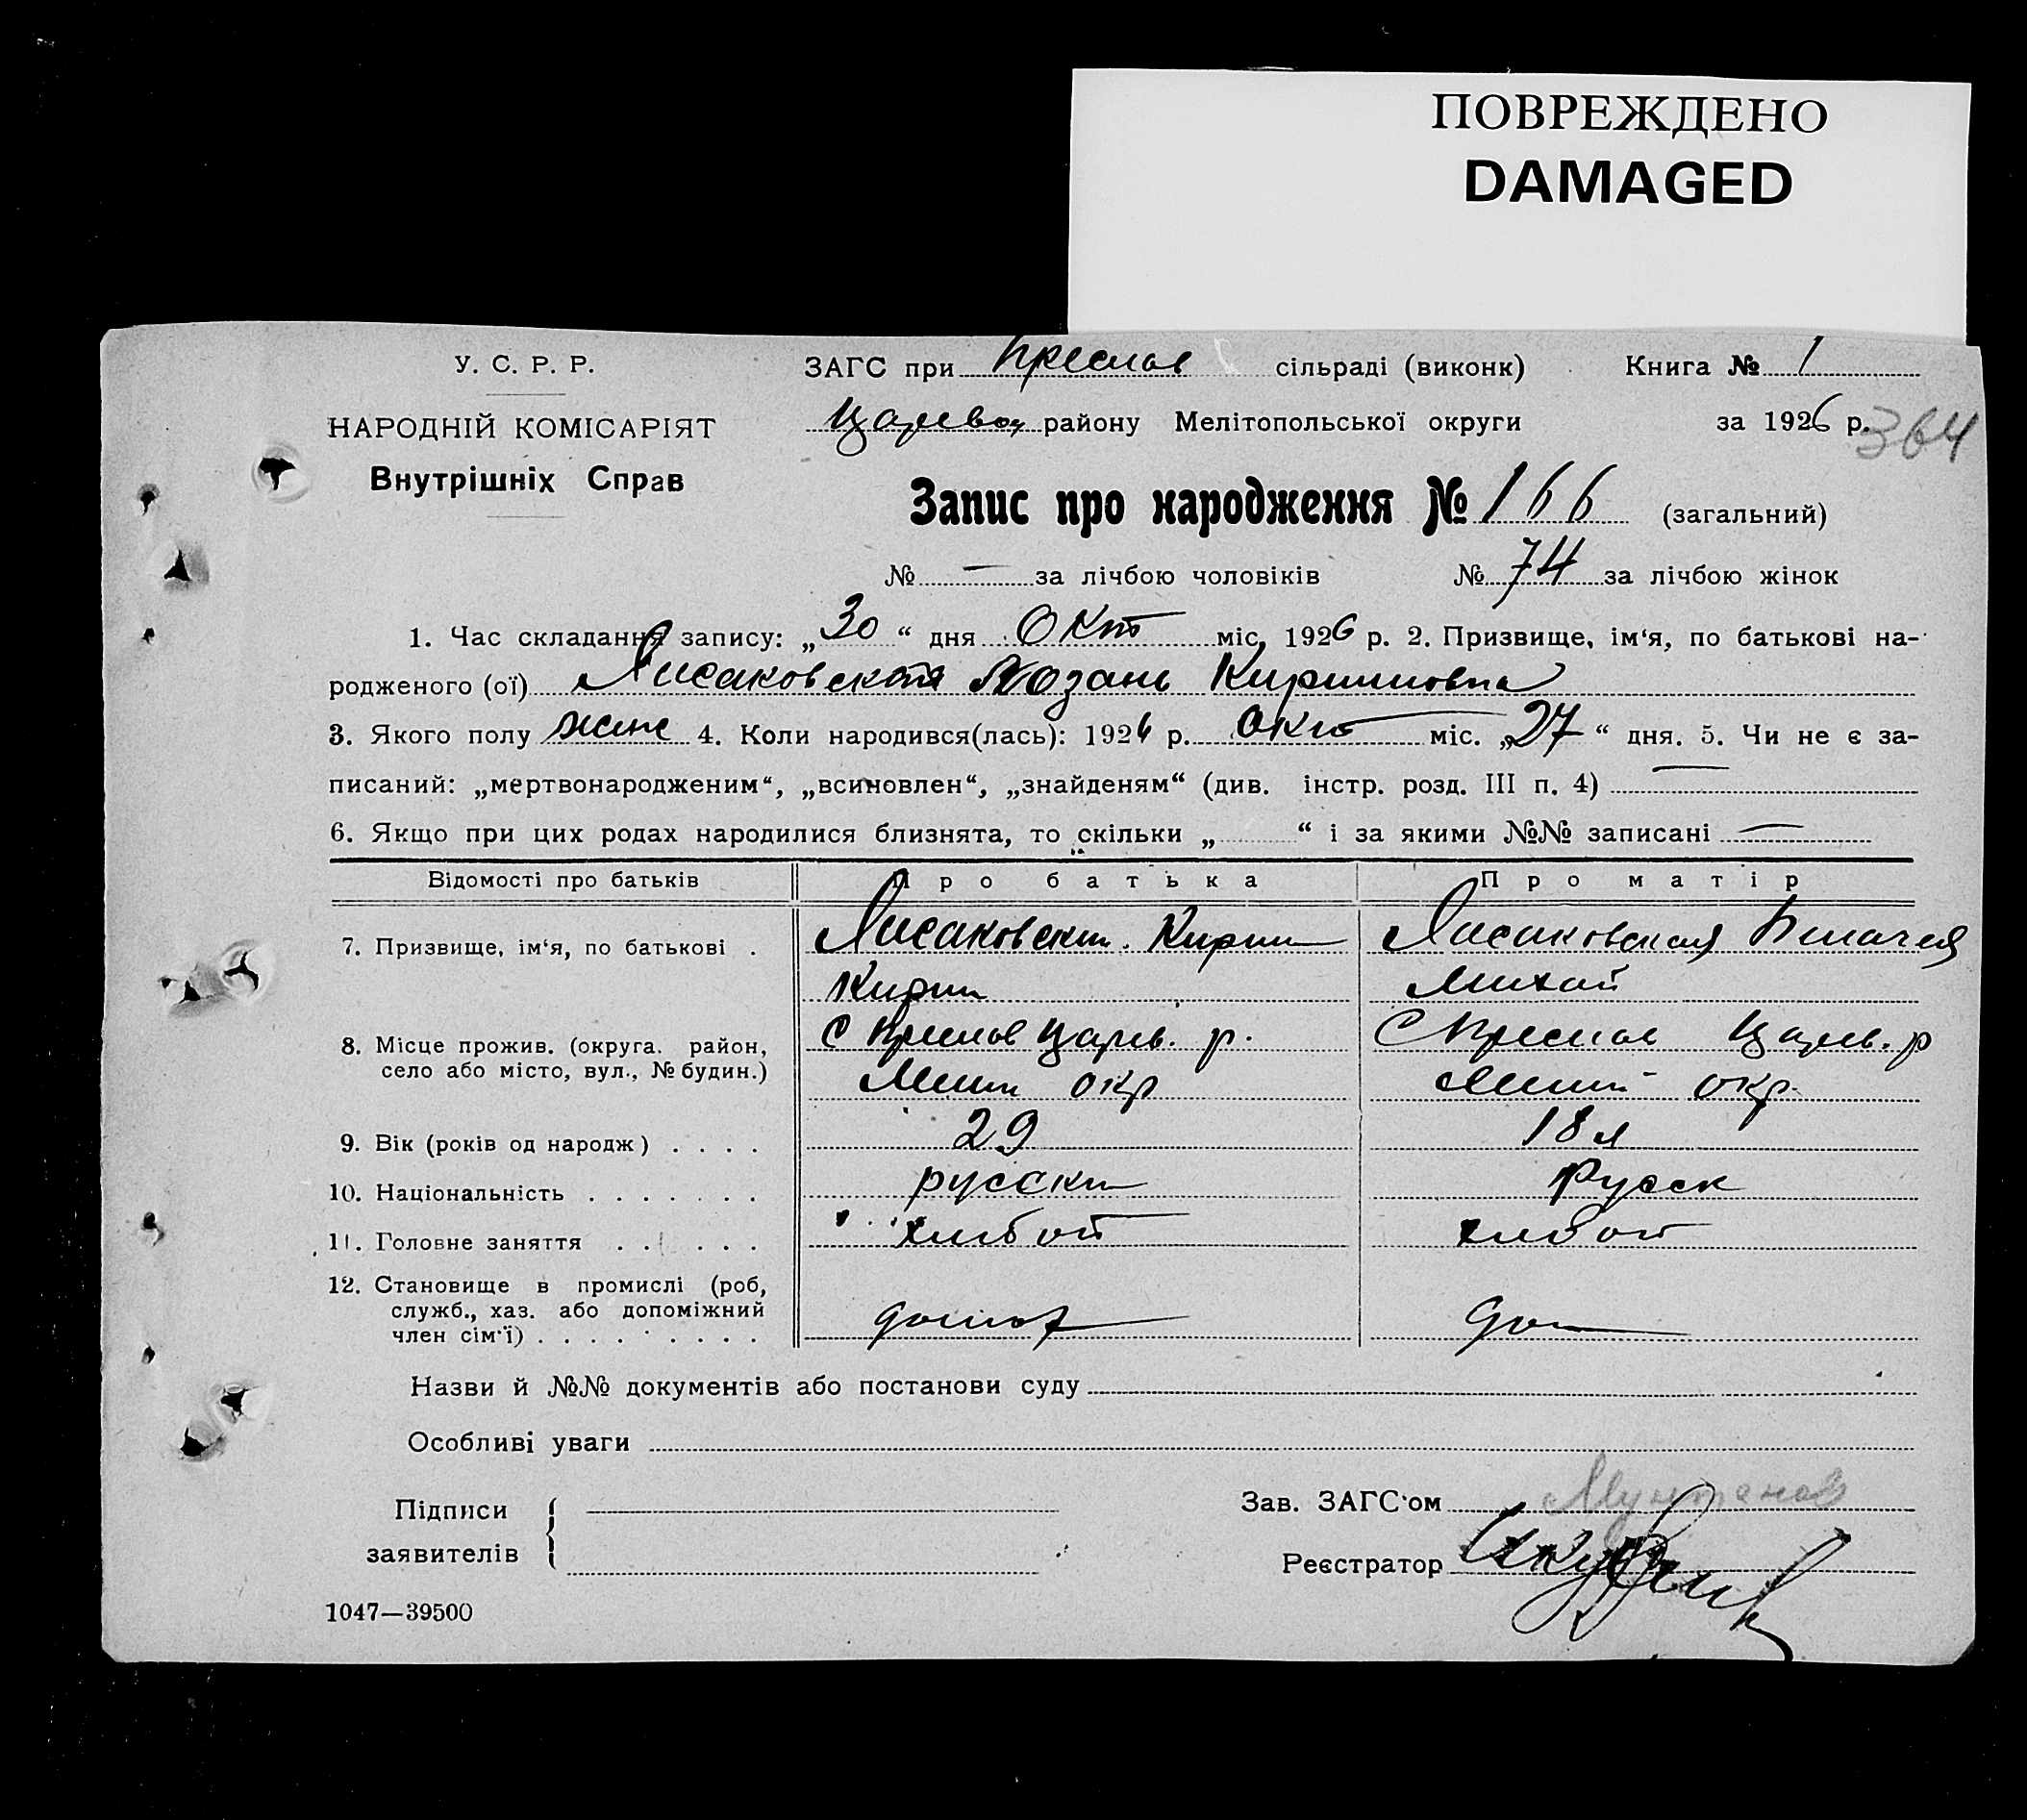 ПОВРЕЖДЕНО
DAMAGED
У. С. Р. Р.
ЗАГС при Преслав сільраді (виконк) Книга № 1
НАРОДНІЙ КОМІСАРІЯТ
Царевод району Мелітопольської округи за 1926 р.
364
Внутрішніх Справ
Запис про народження № 166 (загальний)
№ — за лічбою чоловіків № 74 за лічбою жінок
1. Час складання запису: „30“ дня Окт міс, 1926 р. 2. Призвище, ім‘я, по батькові на-
родженого (ої) Лисаковская Кириловна
3. Якого полу жен 4. Коли народився(лась): 1926 р. окт міс. „27“ дня. 5. Чи не є за-
писаний: „мертвонародженим“, „всиновлен“, „знайденям“ (див. інстр. розд. III п. 4) —
6. Якщо при цих родах народилися близнята, то скільки „ “ і за якими №№ записані —
Відомості про батьків Про батька Про матір
7. Призвище, ім‘я, по батькові . Лисаковски Кирил Лисаковская
Кирил Михай
8. Місце прожив. (округа. район, с Преслав Царев. р. С Преслав Царев. р
село або місто, вул., № будин.) Мелит окр Мелит окр
9. Вік (років од народж) . . . . 29 18 л
10. Національність . . . . . . . русски Русск
11. Головне заняття . . . . . . хлебоп хлебоп
12. Становище в промислі (роб,
служб., хаз. або допоміжний
член сім‘ї) . . . . . . . . . домох дом
Назви й №№ документів або постанови суду
Особливі уваги
Підписи
заявителів
Зав. ЗАГС‘ом Мунтянов
Реєстратор
1047—39500